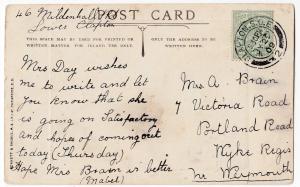 46 Mildenhall
Lower Clapton
POST CARD
THIS SPACE MAY BE USED FOR WRITTEN MATTER FOR INLAND USE ONLY.
ONLY THE ADDRESS TO BE WRITTEN HERE.
Mrs Day wishes
me to write and let
you know that she
is going on Satisfactory
and hopes of coming out
today (Thursday)
Hope Mrs Brain is better
(Mabel)
Mrs A. Brain
7 Victoria Road
Portland Road
Wyke Regis
Nr Weymouth